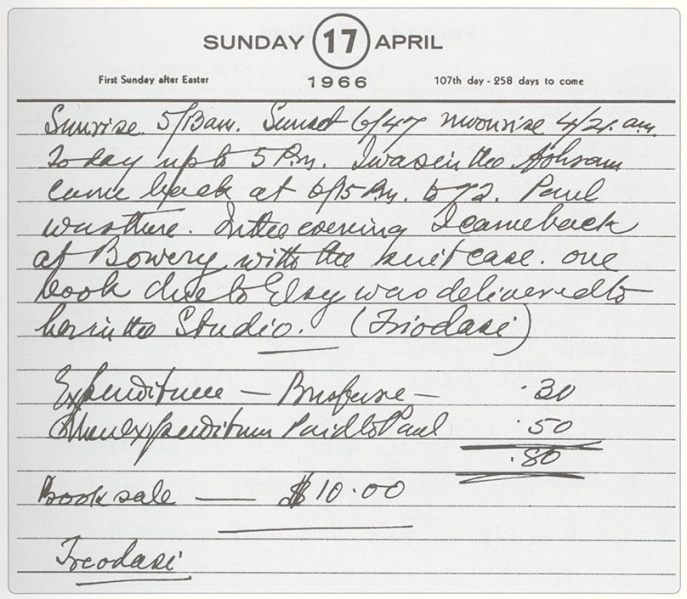 SUNDAY 17 APRIL
First Sunday after Easter 1966 107th day - 258 days to come
Sunrise 5/13 am. Sunset 6/47 moonrise 4/21 a.m.
Today up to 5 P.M. I was in the Ashram
came back at 6/15 P.M. to 72. Paul
was there. In the evening I came back
at Bowery with the suitcase. one
book due to Elsy was delivered to
her in the Studio. (
Expenditure — Busfare — .30
expenditure Paid to Paul .50
.80
Book sale — $10.00